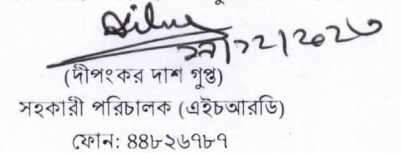 (দীপংকর দাশ গুপ্ত)
সহকারী পরিচালক (এইচআরডি)
ফোন: ৪৪৮২৬৭৮৭